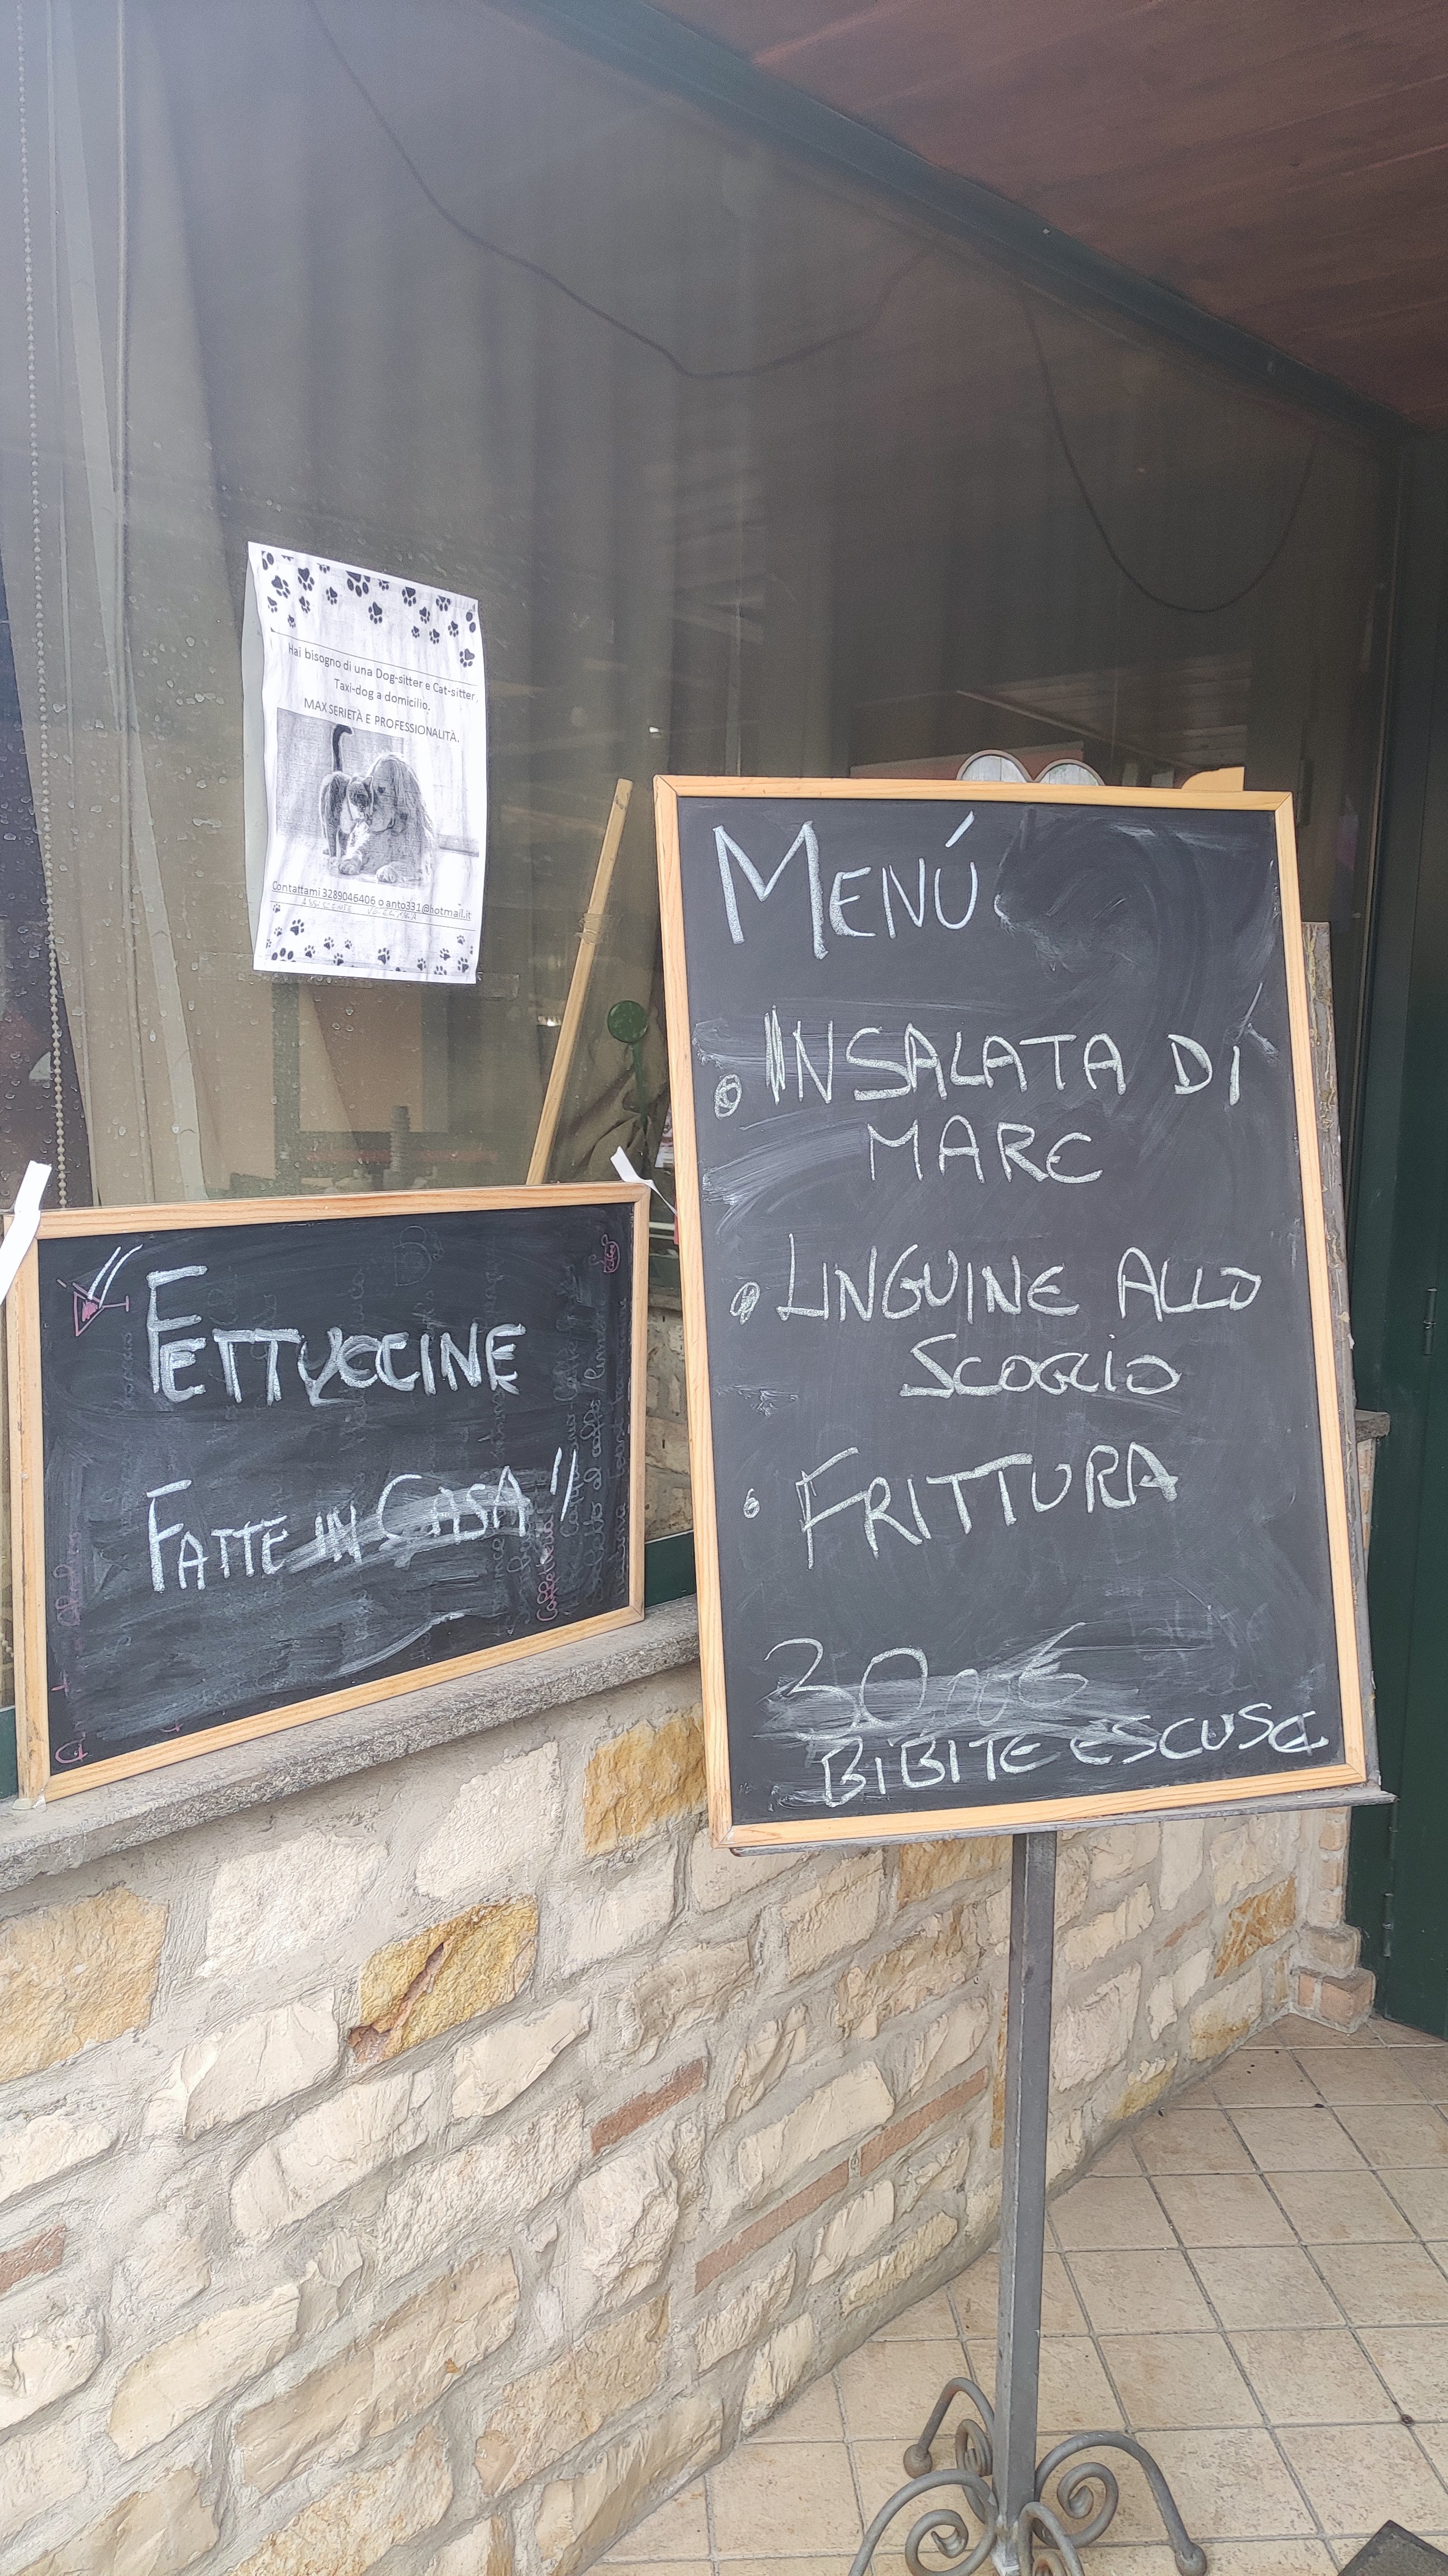 Hai bisogno di una Dog-sitter e Cat-sitter,
Taxi-dog a domicilio.
MAX SERIETÀ E PROFESSIONALITÀ.
Contattami 3289046406 o anto331@hotmail.it
"FETTUCCINE
FATTE IN CASA"
MENÚ
INSALATA DI
MARE
LINGUINE ALLO
SCOGLIO
FRITTURA
30 €
BIBITE ESCUSE